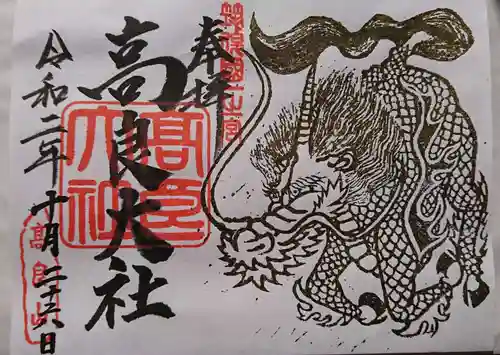 筑後国一之宮
奉拝
高良大社
高良大社
令和二年十月二十六日
高良山